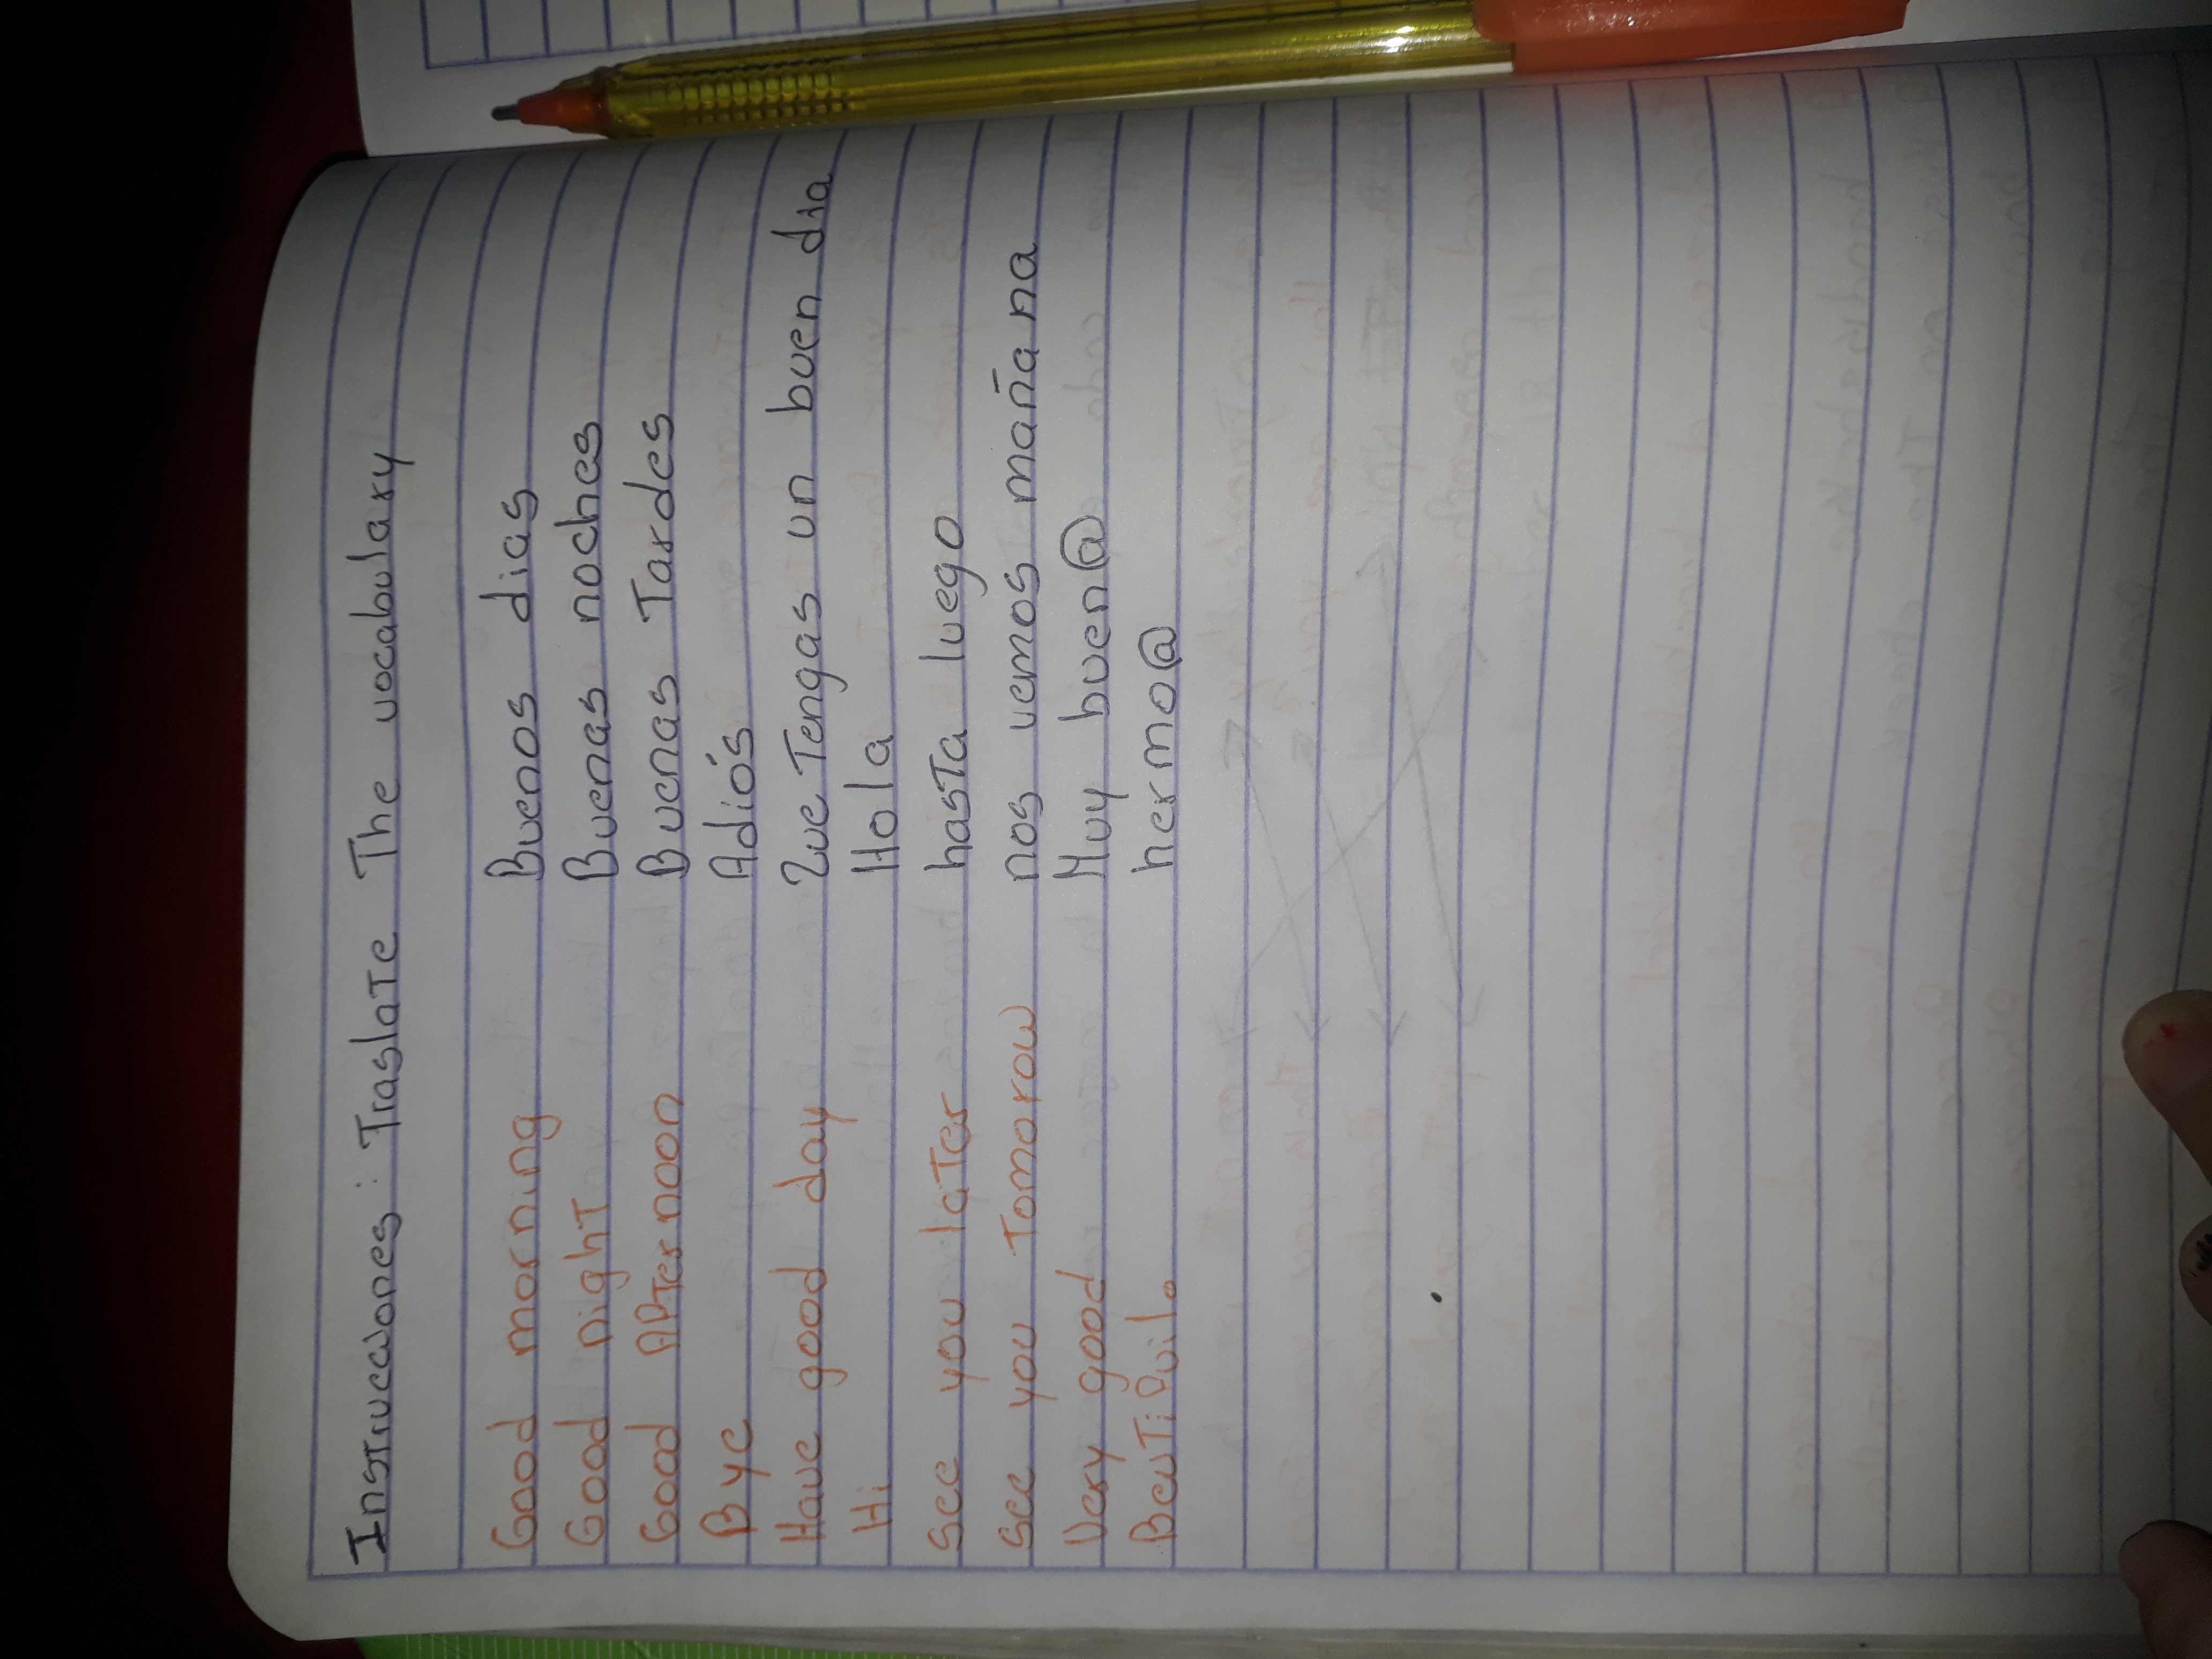 Instrucciones: Traslate The vocabulary
Good morning Buenos dias
Good night Buenas noches
Good APternoon Buenas Tardes
Bye Adiós
Have good day Que Tengas un buen dia
Hi Hola
see you laTer hasTa luego
see you Tomorow nos vemos mañana
Very good Muy buen@
BeuTiPuil. hermo@